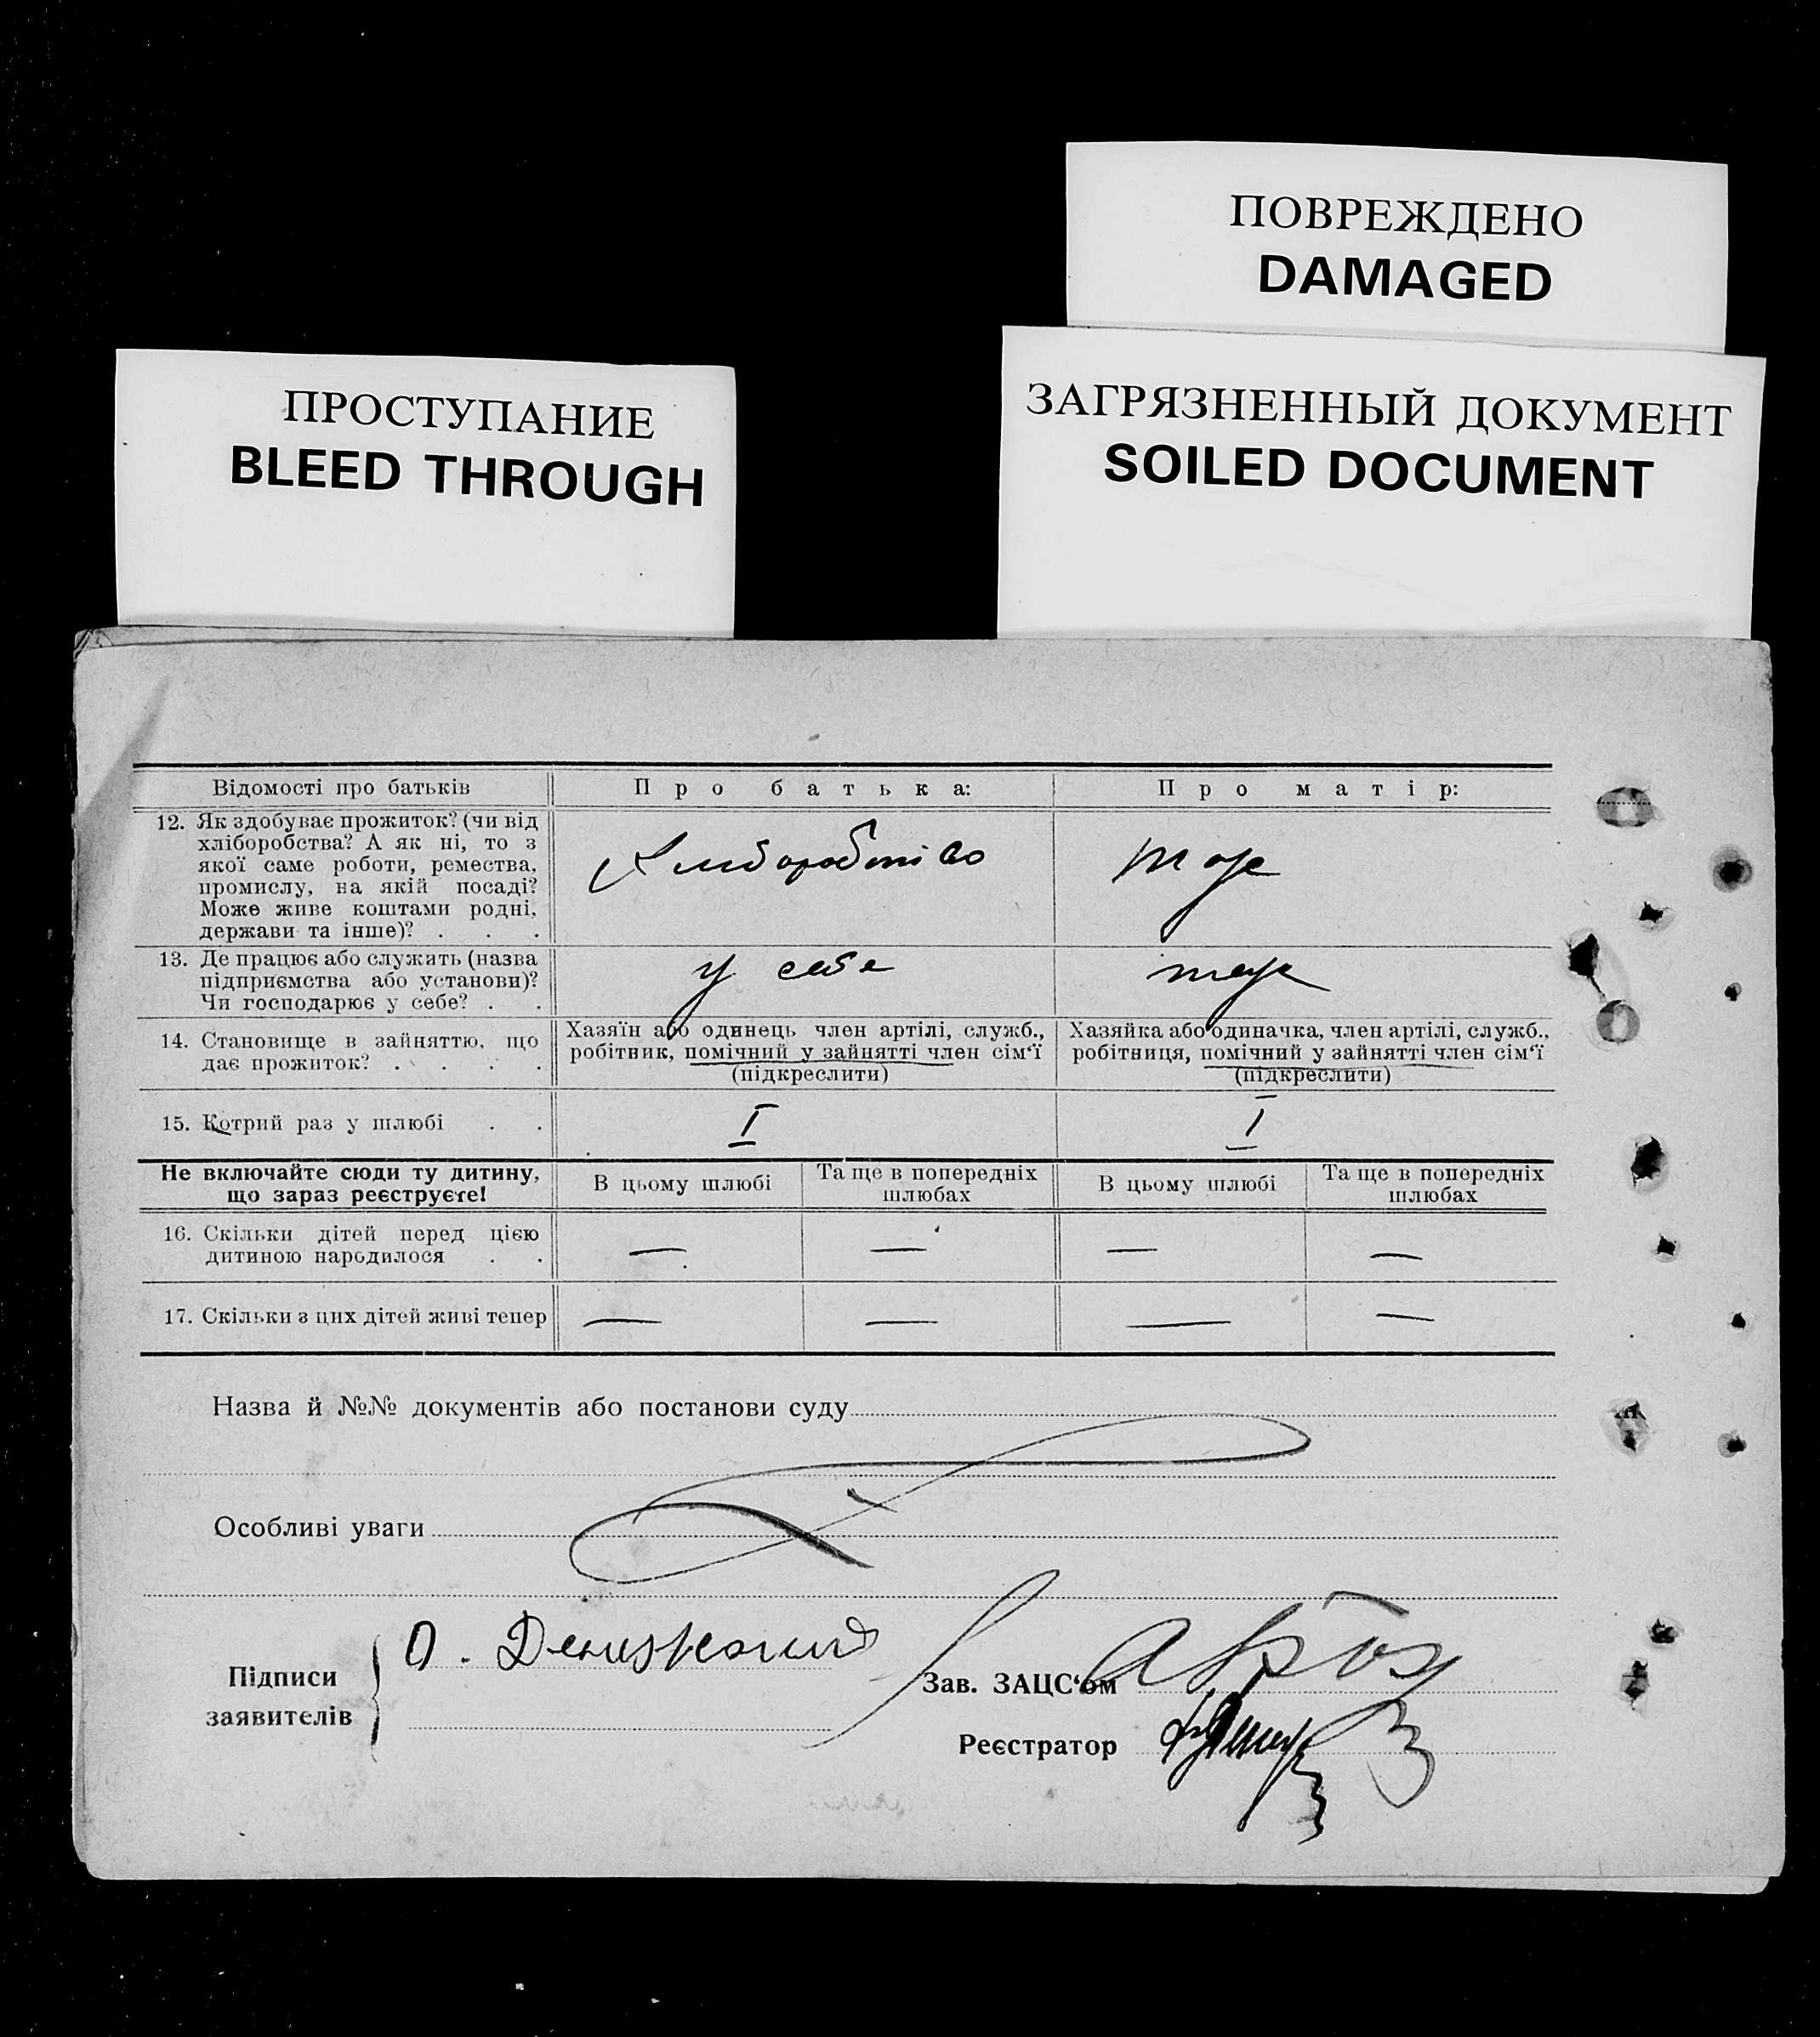 ПОВРЕЖДЕНО
DAMAGED
ПРОСТУПАНИЕ
BLEED THROUGH
ЗАГРЯЗНЕННЫЙ ДОКУМЕНТ
SOILED DOCUMENT
Відомості про батьків
Про батька:
Про матір:
12. Як здобуває прожиток? (чи від
хліборобства? А як ні, то з
якої саме роботи, ремества,
промислу, на якій посаді?
Може живе коштами родні,
держави та інше)? . . .
Хліборобство
тоже
13. Де працює або служить (назва
підприємства або установи)?
Чи господарює у себе? . .
у себе
тоже
14. Становище в зайняттю, що
дає прожиток? . . . .
Хазяїн або одинець член артілі, служб.,
робітник, помічний у зайнятті член сім'ї
(підкреслити)
Хазяйка або одиначка, член артілі, служб.,
робітниця, помічний у зайнятті член сім'ї
(підкреслити)
15. Котрий раз у шлюбі . .
I
I
Не включайте сюди ту дитину,
що зараз реєструєте!
В цьому шлюбі
Та ще в попередніх
шлюбах
В цьому шлюбі
Та ще в попередніх
шлюбах
16. Скільки дітей перед цією
дитиною народилося . .
— — — —
17. Скільки з цих дітей живі тепер
— — — —
Назва й №№ документів або постанови суду
Особливі уваги
Підписи
заявителів
Зав. ЗАЦС'ом
Реєстратор